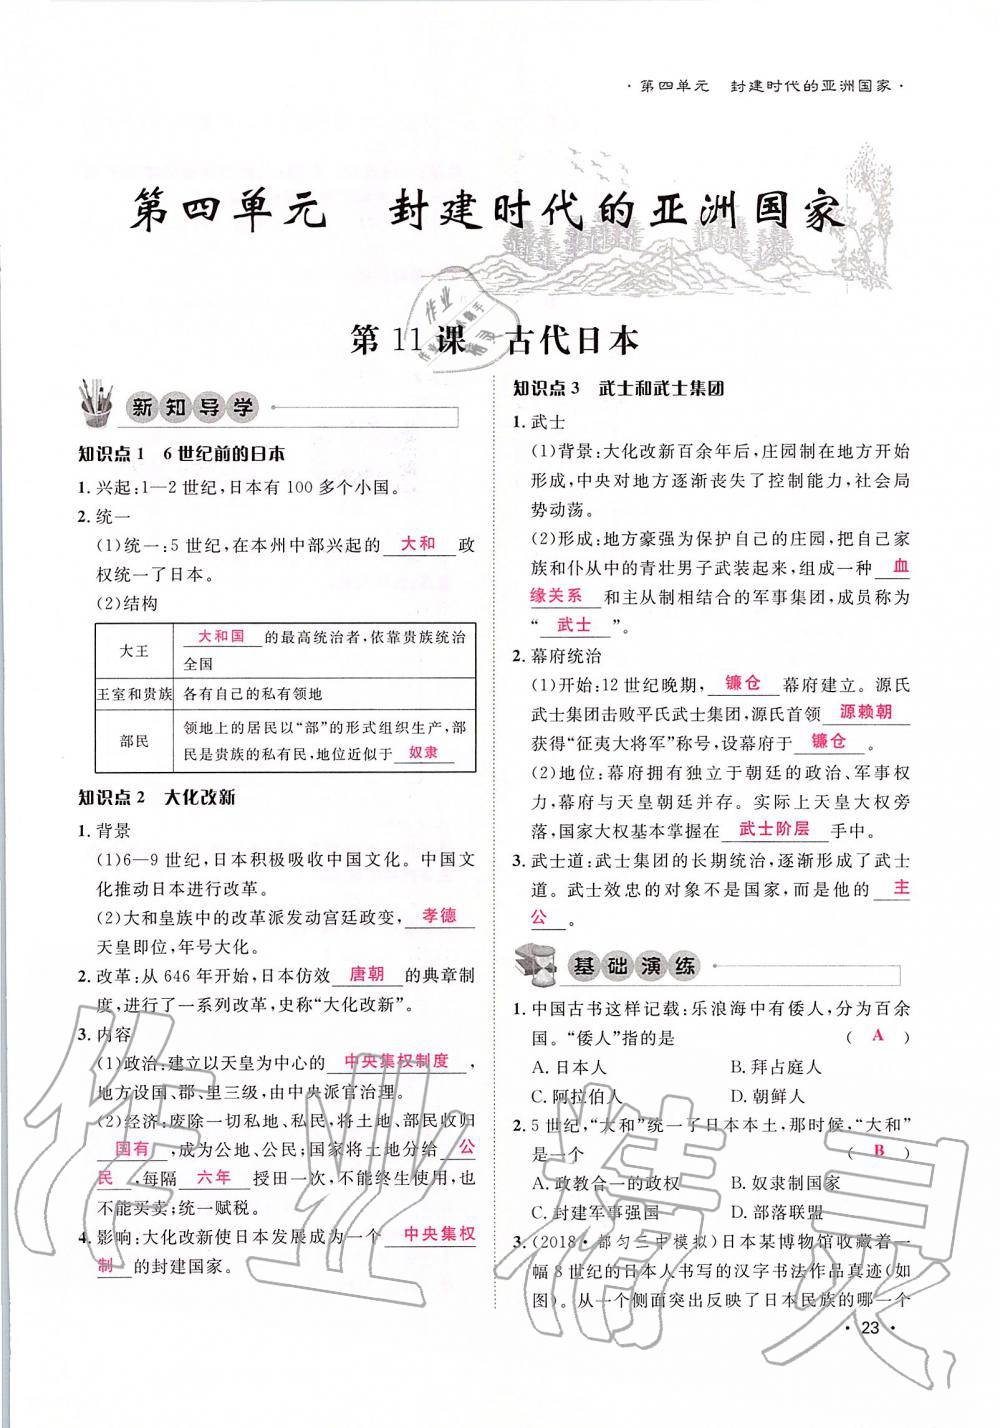 ·第四单元 封建时代的亚洲国家·
第四单元 封建时代的亚洲国家
第11课 古代日本
新知导学
知识点1 6世纪前的日本
1. 兴起:1—2世纪,日本有100多个小国。
2. 统一
(1)统一:5世纪,在本州中部兴起的 大和 政
权统一了日本。
(2)结构
大王
大和国 的最高统治者,依靠贵族统治
全国
王室和贵族 各有自己的私有领地
部民
领地上的居民以“部”的形式组织生产,部
民是贵族的私有民,地位近似于 奴隶
知识点2 大化改新
1. 背景
(1)6—9世纪,日本积极吸收中国文化。中国文
化推动日本进行改革。
(2)大和皇族中的改革派发动宫廷政变, 孝德
天皇即位,年号大化。
2. 改革:从646年开始,日本仿效 唐朝 的典章制
度,进行了一系列改革,史称“大化改新”。
3. 内容
(1)政治:建立以天皇为中心的 中央集权制度 ,
地方设国、郡、里三级,由中央派官治理。
(2)经济:废除一切私地、私民,将土地、部民收归
国有 ,成为公地、公民;国家将土地分给 公
民 ,每隔 六年 授田一次,不能终生使用,也
不能买卖;统一赋税。
4. 影响:大化改新使日本发展成为一个 中央集权
制 的封建国家。
知识点3 武士和武士集团
1. 武士
(1)背景:大化改新百余年后,庄园制在地方开始
形成,中央对地方逐渐丧失了控制能力,社会局
势动荡。
(2)形成:地方豪强为保护自己的庄园,把自己家
族和仆从中的青壮男子武装起来,组成一种 血
缘关系 和主从制相结合的军事集团,成员称为
“ 武士 ”。
2. 幕府统治
(1)开始:12世纪晚期, 镰仓 幕府建立。源氏
武士集团击败平氏武士集团,源氏首领 源赖朝
获得“征夷大将军”称号,设幕府于 镰仓 。
(2)地位:幕府拥有独立于朝廷的政治、军事权
力,幕府与天皇朝廷并存。实际上天皇大权旁
落,国家大权基本掌握在 武士阶层 手中。
3. 武士道:武士集团的长期统治,逐渐形成了武士
道。武士效忠的对象不是国家,而是他的 主
公 。
基础演练
1. 中国古书这样记载:乐浪海中有倭人,分为百余
国。“倭人”指的是 ( A )
A. 日本人 B. 拜占庭人
C. 阿拉伯人 D. 朝鲜人
2. 5世纪,“大和”统一了日本本土,那时候,“大和”
是一个 ( B )
A. 政教合一的政权 B. 奴隶制国家
C. 封建军事强国 D. 部落联盟
3. (2018·都匀三中模拟)日本某博物馆收藏着一
幅8世纪的日本人书写的汉字书法作品真迹(如
图)。从一个侧面突出反映了日本民族的哪一个
·23·
作业精灵